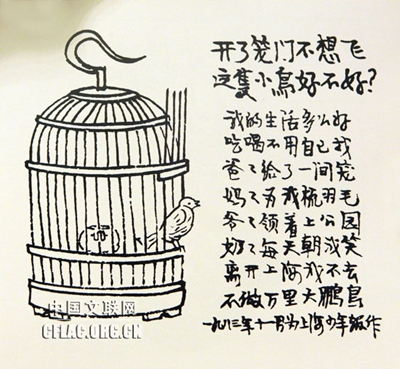 开了笼门不想飞
这隻小鳥好不好?
我的生活多么好
吃喝不用自己找
爸々给了一间笼
妈々为我梳羽毛
爷々领着上公园
奶々每天朝我笑
离开上海我不去
不做万里大鹏鳥
一九八三年十一月为上海少年报作
中国文联网
CFLAC.ORG.CN